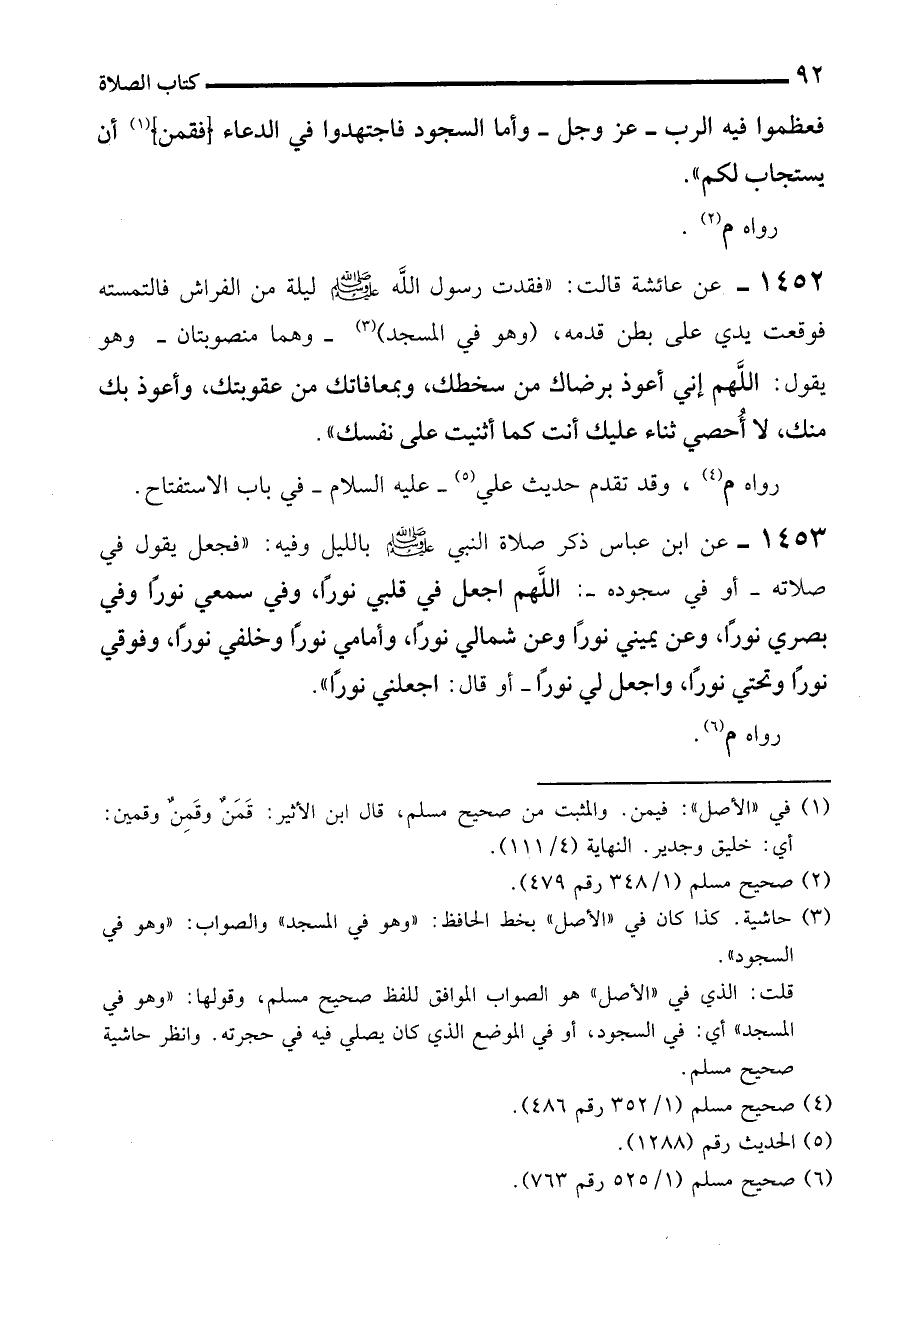 ٩٢ كتاب الصلاة
فعظموا فيه الرب ـ عز وجل ـ وأما السجود فاجتهدوا في الدعاء {فقمن}(١) أن
يستجاب لكم».
رواه م(٢) .
١٤٥٢ ـ عن عائشة قالت: «فقدت رسول اللَّه ﷺ ليلة من الفراش فالتمسته
فوقعت يدي على بطن قدمه، (وهو في المسجد)(٣) ـ وهما منصوبتان ـ وهو
يقول: اللَّهم إني أعوذ برضاك من سخطك، وبمعافاتك من عقوبتك، وأعوذ بك
منك، لا أُحصي ثناء عليك أنت كما أثنيت على نفسك».
رواه م(٤) ، وقد تقدم حديث علي(٥) ـ عليه السلام ـ في باب الاستفتاح.
١٤٥٣ ـ عن ابن عباس ذكر صلاة النبي ﷺ بالليل وفيه: «فجعل يقول في
صلاته ـ أو في سجوده ـ: اللَّهم اجعل في قلبي نورًا، وفي سمعي نورًا وفي
بصري نورًا، وعن يميني نورًا وعن شمالي نورًا، وأمامي نورًا وخلفي نورًا، وفوقي
نورًا وتحتي نورًا، واجعل لي نورًا ـ أو قال: اجعلني نورًا».
رواه م(٦).
(١) في «الأصل»: فيمن. والمثبت من صحيح مسلم، قال ابن الأثير: قَمَنٌ وقَمِنٌ وقمين:
أي: خليق وجدير. النهاية (٤/ ١١١).
(٢) صحيح مسلم (١/ ٣٤٨ رقم ٤٧٩).
(٣) حاشية. كذا كان في «الأصل» بخط الحافظ: «وهو في المسجد» والصواب: «وهو في
السجود».
قلت: الذي في «الأصل» هو الصواب الموافق للفظ صحيح مسلم، وقولها: «وهو في
المسجد» أي: في السجود، أو في الموضع الذي كان يصلي فيه في حجرته. وانظر حاشية
صحيح مسلم.
(٤) صحيح مسلم (١/ ٣٥٢ رقم ٤٨٦).
(٥) الحديث رقم (١٢٨٨).
(٦) صحيح مسلم (١/ ٥٢٥ رقم ٧٦٣).